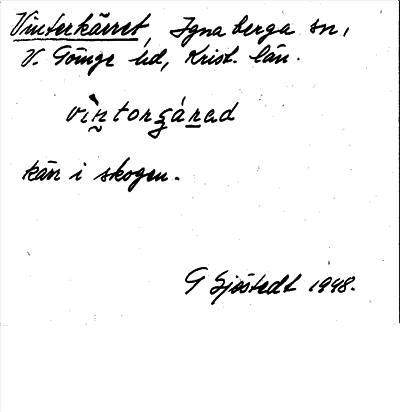 Vinterkärret, Ignaberga sn,
V. Göinge hd, Krist. län.
kärr i skogen.
G Sjöstedt 1948.